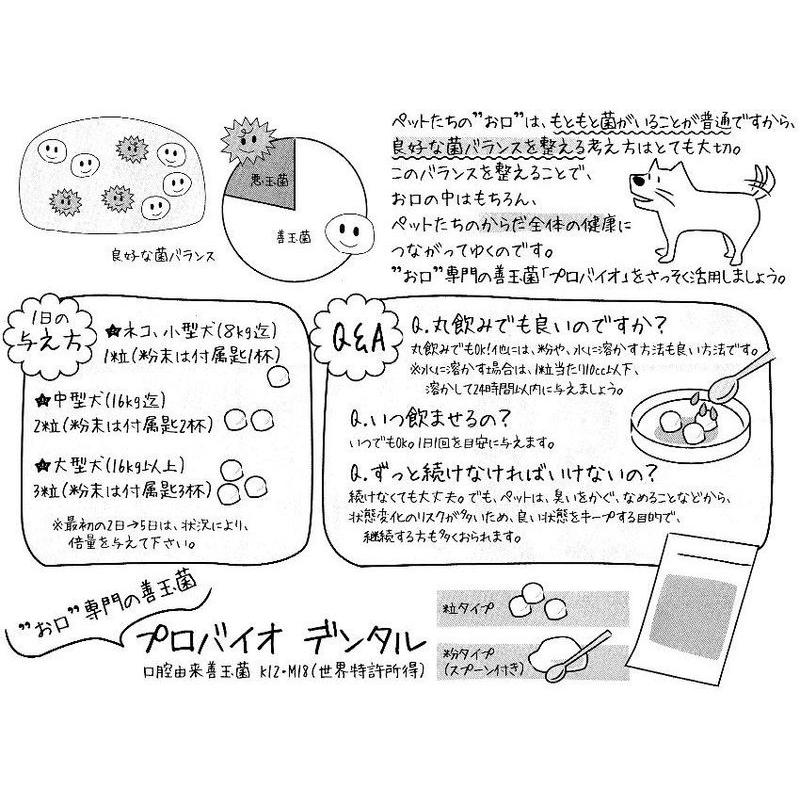 ペットたちの”お口”は、もともと菌がいることが普通ですから、
良好な菌バランスを整える考え方はとても大切。
このバランスを整えることで、
お口の中はもちろん、
ペットたちのからだ全体の健康に
つながってゆくのです。
”お口”専門の善玉菌「プロバイオ」をさっそく活用しましょう。
悪玉菌
善玉菌
良好な菌バランス
1日の
与え方
☆ネコ、小型犬(8kg迄)
1粒(粉末は付属匙1杯)
☆中型犬(16kg迄)
2粒(粉末は付属匙2杯)
☆大型犬(16kg以上)
3粒(粉末は付属匙3杯)
※最初の2日→5日は、状況により、
倍量を与えて下さい。
Q&A
Q.丸飲みでも良いのですか?
丸飲みでもOK!他には、粉や、水に溶かす方法も良い方法です。
※水に溶かす場合は、1粒当たり10cc以下、
溶かして24時間以内に与えましょう。
Q.いつ飲ませるの?
いつでもOK。1日1回を目安に与えます。
Q.ずっと続けなければいけないの?
続けなくても大丈夫。でも、ペットは、臭いをかぐ、なめることなどから、
状態変化のリスクが多いため、良い状態をキープする目的で、
継続する方も多くおられます。
”お口”専門の善玉菌
プロバイオ デンタル
口腔由来善玉菌 K12・M18(世界特許所得)
粒タイプ
粉タイプ
(スプーン付き)